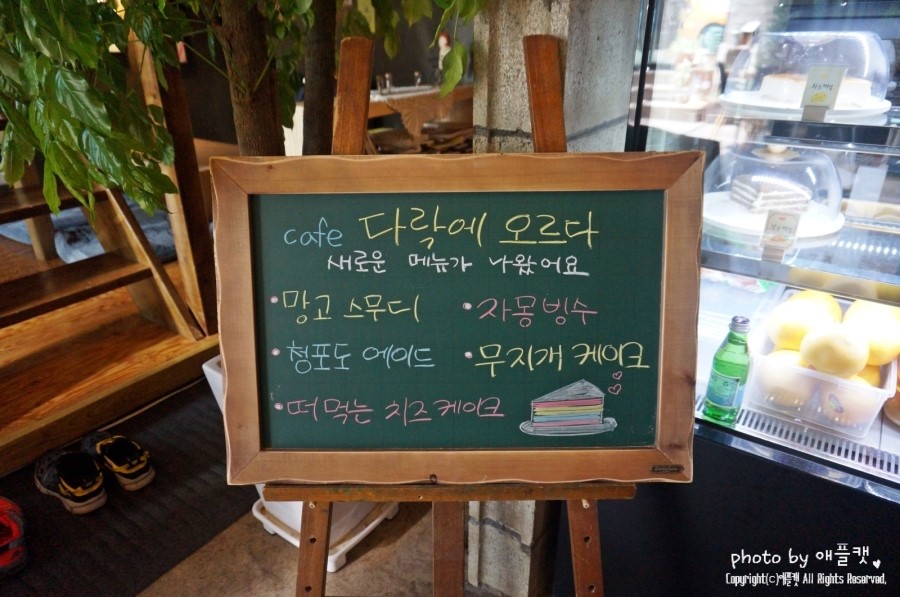 cafe 다락에 오르다
새로운 메뉴가 나왔어요
• 망고 스무디 • 자몽빙수
• 청포도 에이드 • 무지개 케이크
• 떠먹는 치즈케이크
photo by 애플캣
Copyright(c)애플캣 All Rights Reserved.